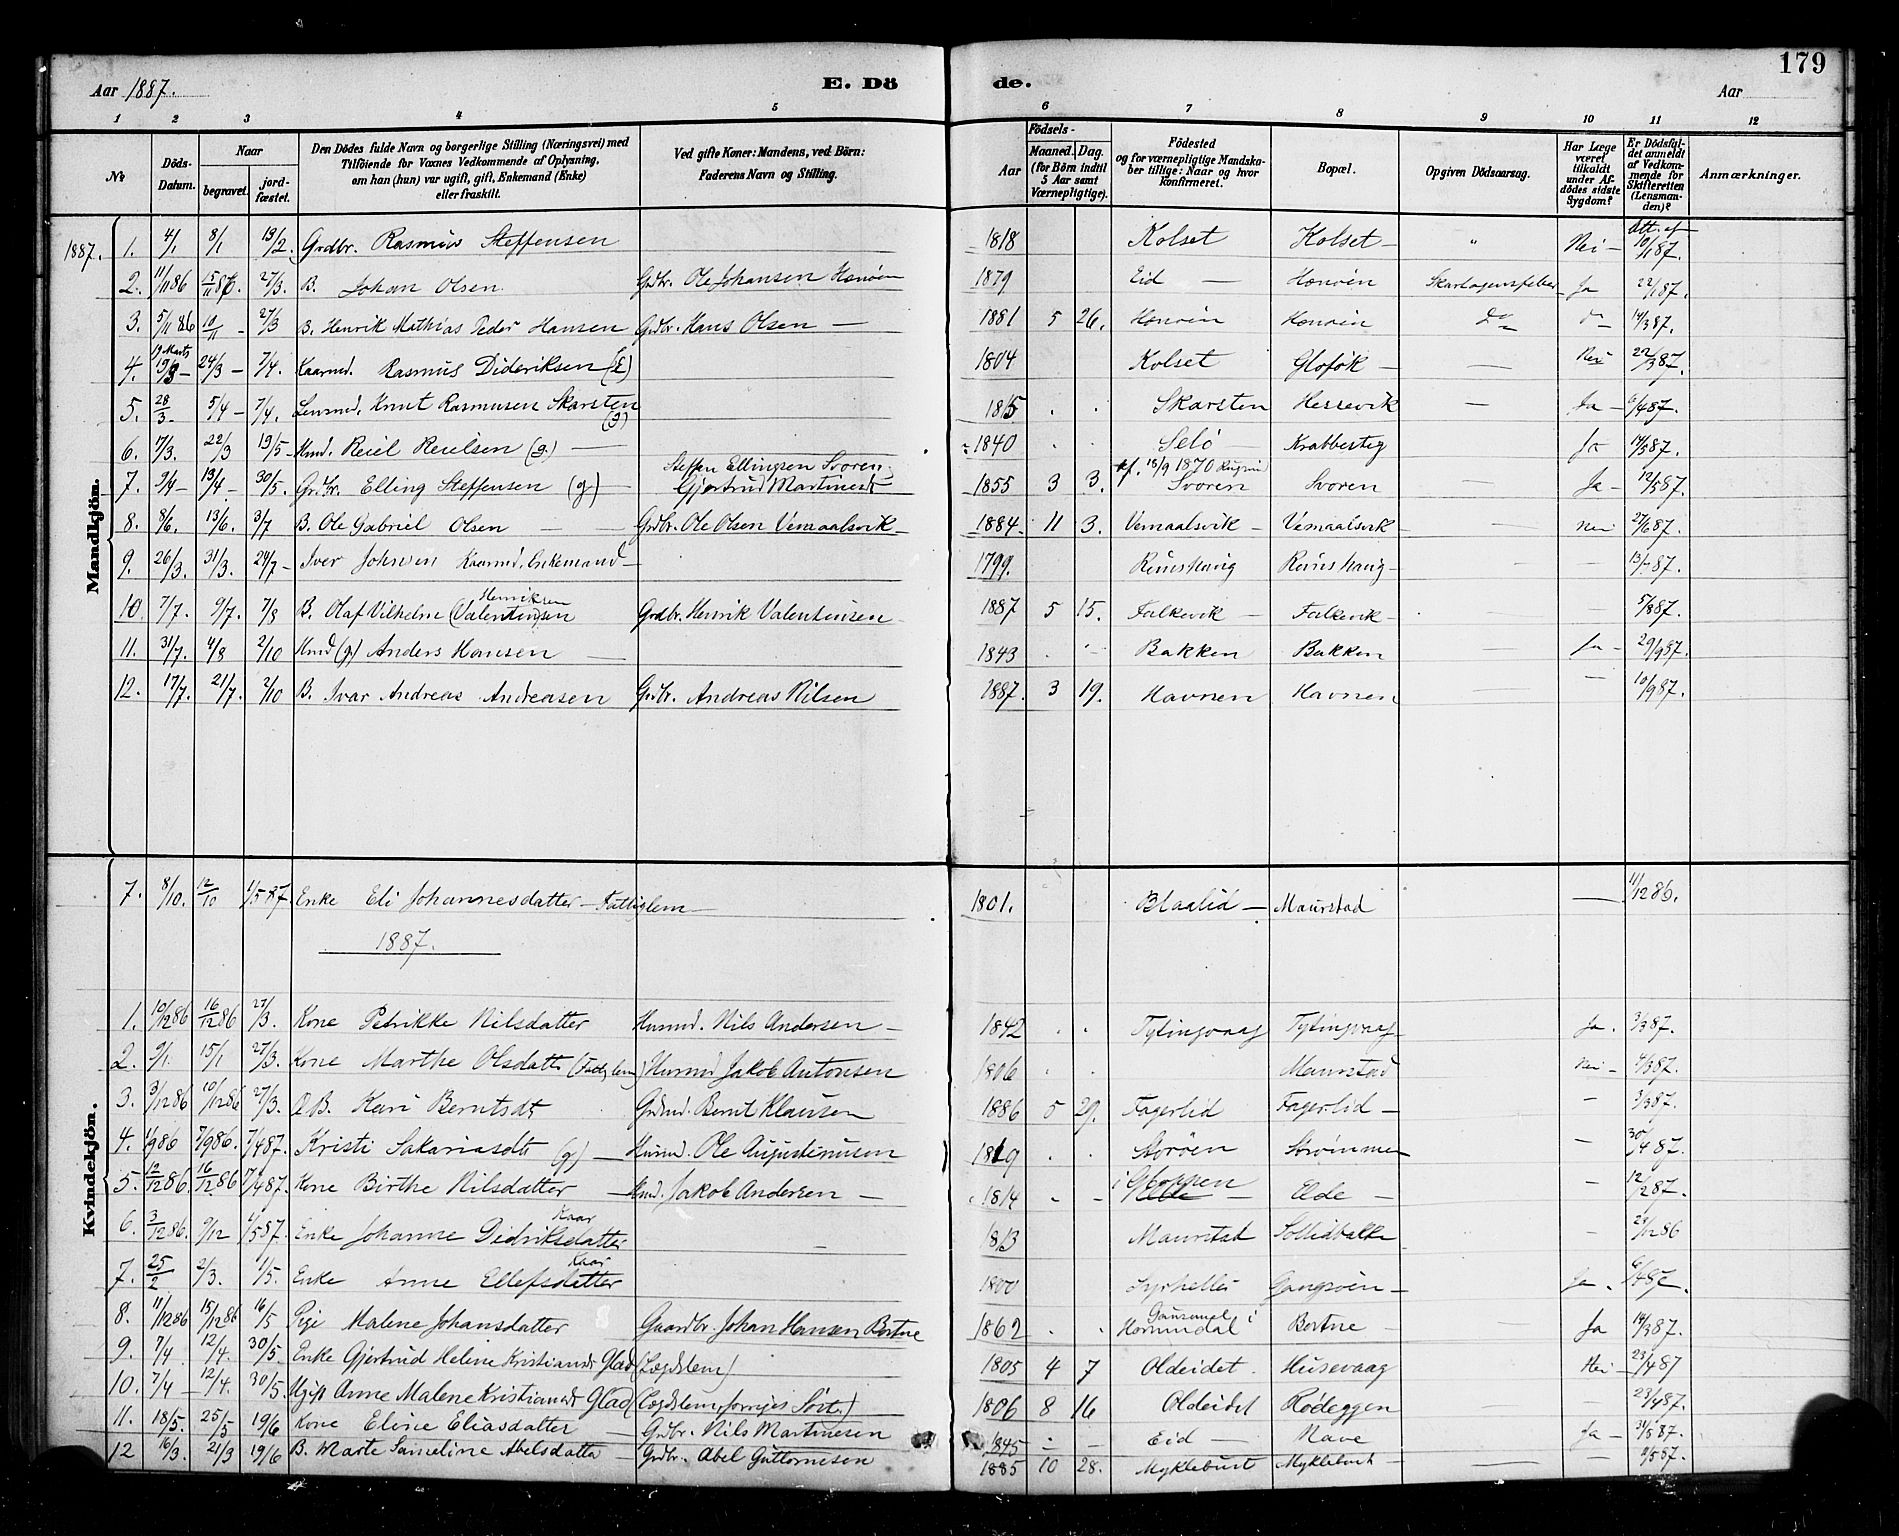 179
Aar 1887. E. Dö de. Aar
1 2 3 4 5 6 7 8 9 10 11 12
No
Döds-Datum.
Naar
begravet.
jord-fæstet.
Den Dödes fulde Navn og borgerlige Stilling (Næringsvei) med
Tilföiende for Voxnes Vedkommende af Oplysning,
om han (hun) var ugift, gift, Enkemand (Enke)
eller fraskilt.
Ved gifte Koner: Mandens, ved Börn:
Faderens Navn og Stilling.
Födsels-
Aar
Maaned. Dag.
(for Börn indtil
5 Aar samt
Værnepligtige).
Födested
og for værnepligtige Mandska-
ber tillige: Naar og hvor
konfirmeret.
Bopæl.
Opgiven Dödsaarsag.
Har Læge
været
tilkaldt
under Af-
dödes sidste
Sygdom?
Er Dödsfal-
det anmeldt
af Vedkom-
mende for
Skifteretten
(Lensman-
den)?
Anmærkninger.
Mandkjön.
1887. 1. 4/1 8/1 13/2. Grdbr. Rasmus Steffensen 1818 Kolset Kolset " Nei Att. af 10/1 87.
2. 11/11 86 15/11 86. 27/3. B. Johan Olsen Grdbr. Ole Johansen Honöen 1879 Eid Honöen Ja 22/1 87.
3. 5/11 86 10/11 27/3 B. Henrik Mathias Peder Hansen Grdbr. Hans Olsen 1881 5 26. Honöen Honöen do do 14/3 87.
4. 19 Marts 19/3 24/3 7/4. Kaarmd. Rasmus Dideriksen 1804 Kolset Nei 22/3 87.
5. 28/3 5/4 7/4. Lensmd. Knut Rasmusen Skarsten (g) 1815 Skarsten Hessevik Ja 6/4 87.
6. 17/3. 22/3 19/5 Hmd. Reiel Reielsen (g.) 1840 Selö Krabbestig Ja 14/5 87.
7. 9/4 13/4 30/5. Grdbr. Elling Steffensen (g) Steffen Ellingsen Svoren Gjertrud Martinesdt 1855 3 3. 18/9 1870 Svoren Svoren Ja 12/5 87.
8. 8/6. 13/6. 3/7 B. Ole Gabriel Olsen Grdbr. Ole Olsen Vemaalsvik 1884 11 3. Vemaalsvik Vemaalsvik Nei 27/6 87.
9. 26/3. 31/3. 24/7 Iver Johnsen Kaarmd. Enkemand 1799. Reinshaug Reinshaug 13/7 87.
10. 7/7. 9/7. 7/8 B. Olaf Vilhelm (Valentinsen) Henriksen Grdbr. Henrik Valentinsen 1887 5 15. Falkevik Falkevik 5/8 87.
11. 31/7. 4/8 2/10 Hmd (g) Anders Hansen 1843 Bakken Bakken Ja 29/9 87.
12. 17/7. 21/7. 2/10 B. Ivar Andreas Andreasen Grdbr. Andreas Nilsen 1887. 3 19. Havnen Havnen 10/9 87.
Kvindekjön.
7. 8/10. 12/10 1/5 87. Enke Eli Johannesdatter Fattiglem 1801. Blaalid Maurstad 11/12 86.
1887.
1. 10/12 86 16/12 86 27/3. Kone Petrikke Nilsdatter Husmd. Nils Andersen 1842 Tytingvaag Tytingvaag Ja. 3/3 87.
2. 9/1. 15/1 27/3. Kone Marthe Olsdatt. (Fattiglem) Husmd Jakob Antonsen 1806 Maurstad Nei 4/3 87.
3. 3/12 86 10/12 86 27/3. Kari Berntsdt Grdmd. Bernt Klausen 1886 5 29. Fagerlid Fagerlid 3/3 87.
4. 1/9 86 7/9 86. 7/4 87. Kristi Sakariasdt (g) Husmd. Ole Augustinusen 1819 Storöen Strömmen 30/4 87.
5. 12/12 86. 16/12 86 17/4 87. Kone Birthe Nilsdatter Hmd. Jakob Andersen 1814 i Gloppen Elde 12/2 87.
6. 3/12 86. 9/12 1/5 87. Enke Johanne Didriksdatter Kaar 1813 Maurstad 29/12 86
7. 25/2 2/3. 1/5. Enke Anne Ellefsdatter Kaar 1800 Gangsöen Ja. 6/4 87.
8. 11/12 86 15/12 86 16/5 Pige Malene Johansdatter Gaardbr. Johan Hansen Bortne 1862 i Hornindal Bortne Ja 14/3 87.
9. 7/4 12/4. 30/5 Enke Gjertrud Helene Kristiansdt Glad (Lægdslem) 1805 4 7 Oldeidet Husevaag Nei 23/4 87
10. 7/4 12/4. 30/5 Ugift Anne Malene Kristiansdt Glad 1806 8 16 Oldeidet Rödeggen 23/4 87.
11. 18/5. 25/5 19/6 Kone Eline Eliasdatter Grdbr. Nils Martinesen 1845 Eid Nave Ja 31/5 87.
12 16/3. 21/3 19/6 B. Marte Sameline Abelsdatter Grdbr. Abel Guttormesen 1885 10 28. Myklebust Myklebust 11/5 87.